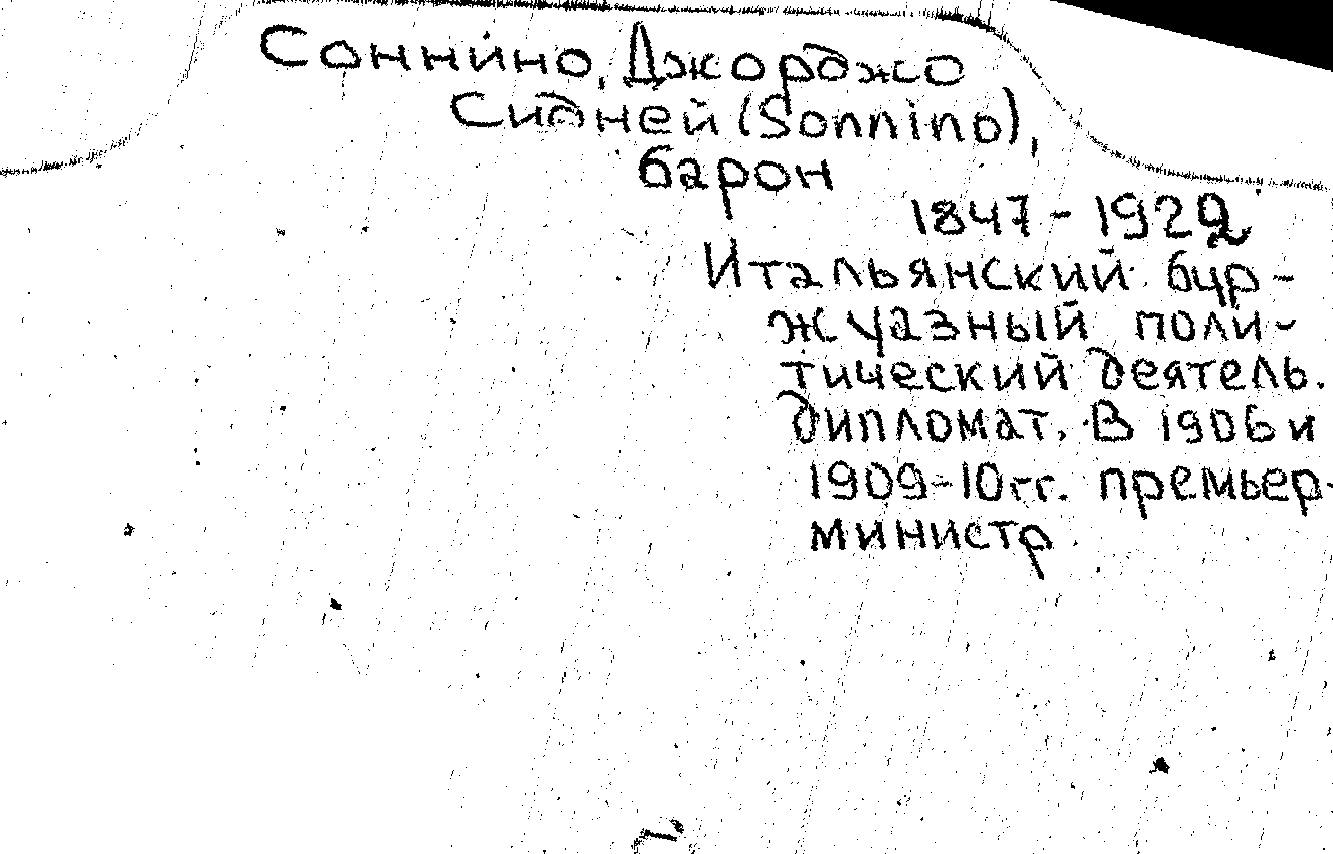 Соннино, Джорджо
Сидней (Sonnino),
барон
1847-1922
Итальянский бур-
жуазный поли-
тический деятель.
дипломат. В 1906 и
1909-10гг. премьер-
министр